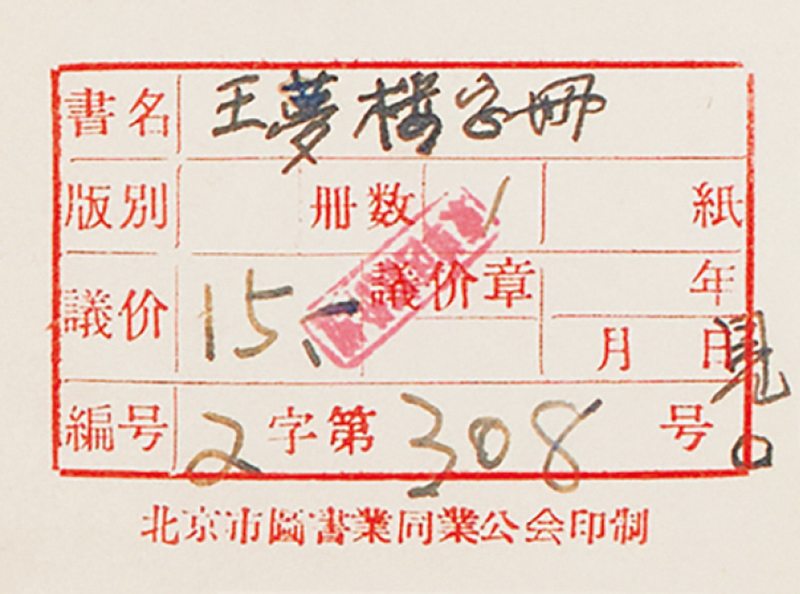 書名 王夢楼字冊
版別 冊数 1 紙
議价 15.- 議价章 年
月 日
編号 2字第308号
北京市圖書業同業公会印制